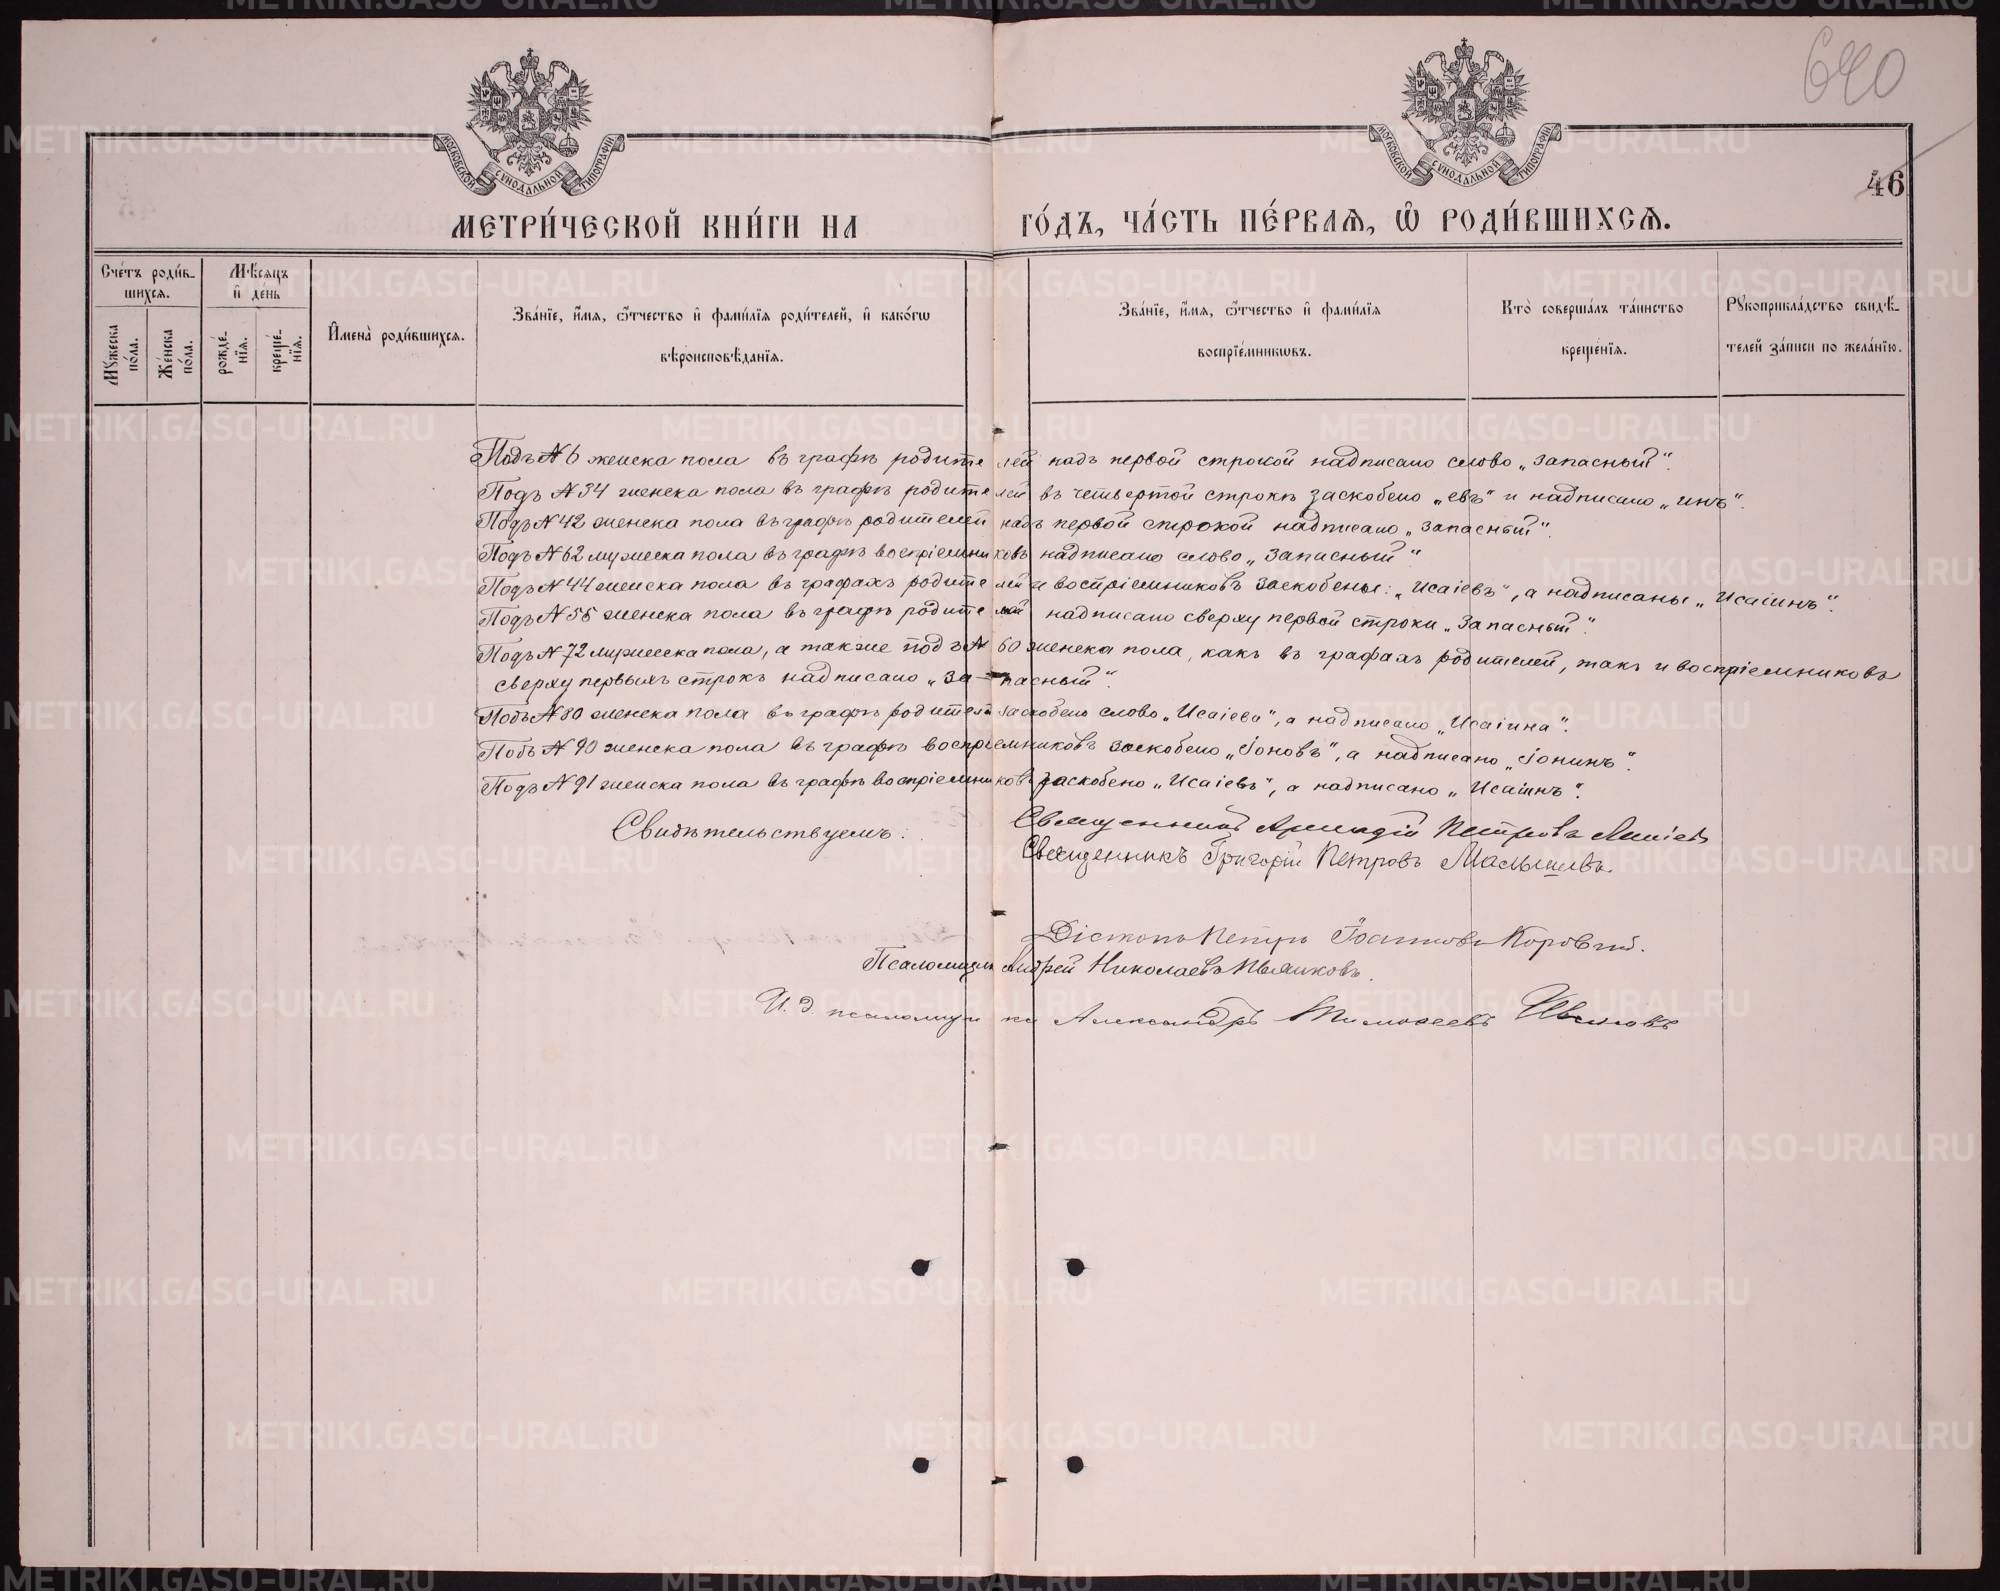 640
46
МОСКОВСКОЙ СѴНОДАЛЬНОЙ ТИПОГРАФІИ
МОСКОВСКОЙ СѴНОДАЛЬНОЙ ТИПОГРАФІИ
МЕТРИ́ЧЕСКОЙ КНИ́ГИ НА ГО́ДЪ, ЧА́СТЬ ПЕ́РВАѦ, Ѽ РОДИ́ВШИХСѦ.
Сче́тъ роди́в-
шихсѧ.
Мѣ́сѧцъ
и҆ де́нь
Мꙋ́жеска по́ла.
Же́нска по́ла.
рожде́-нїѧ.
креще́-нїѧ.
И҆мена̀ роди́вшихсѧ.
Зва́нїе, и҆́мѧ, ѻ҆́тчество и҆ фами́лїѧ роди́телей, и҆ како́гѡ
вѣроисповѣ́данїѧ.
Зва́нїе, и҆́мѧ, ѻ҆́тчество и҆ фами́лїѧ
воспрїе́мникѡвъ.
Кто̀ соверша́лъ та́инство
креще́нїѧ.
Рꙋкоприкла́дство свидѣ́-
телей за́писи по жела́нїю.
Подъ № 6 женска пола въ графѣ родителей надъ первой строкой надписано слово „запасный".
Подъ № 34 женска пола въ графѣ родителей въ четвертой строкѣ заскоблено „евъ" и надписано „инъ".
Подъ № 42 женска пола въ графѣ родителей надъ первой строкой надписано „запасный".
Подъ № 62 мужеска пола въ графѣ воспріемниковъ надписано слово „запасный".
Подъ № 44 женска пола въ графахъ родителей и воспріемниковъ заскоблены: „Исаіевъ", а надписаны „Исаіинъ".
Подъ № 55 женска пола въ графѣ родителей надписано сверху первой строки „запасный".
Подъ № 72 мужеска пола, а также подъ № 60 женска пола, какъ въ графахъ родителей, такъ и воспріемниковъ
сверху первыхъ строкъ надписано „запасный".
Подъ № 80 женска пола въ графѣ родителей заскоблено слово „Исаіева", а надписано „Исаіина".
Подъ № 90 женска пола въ графѣ воспріемниковъ заскоблено „Іоновъ", а надписано „Іонинъ".
Подъ № 91 женска пола въ графѣ воспріемниковъ заскоблено „Исаіевъ", а надписано „Исаіинъ".
Свидѣтельствуемъ: Священникъ Аркадій Петровъ
Священникъ Григорій Петровъ Малышевъ.
Діаконъ Петръ Іоанновъ Коровинъ.
Псаломщикъ Андрей Николаевъ Пьянковъ.
И. д. псаломщика Александръ Тимоѳеевъ Ивановъ